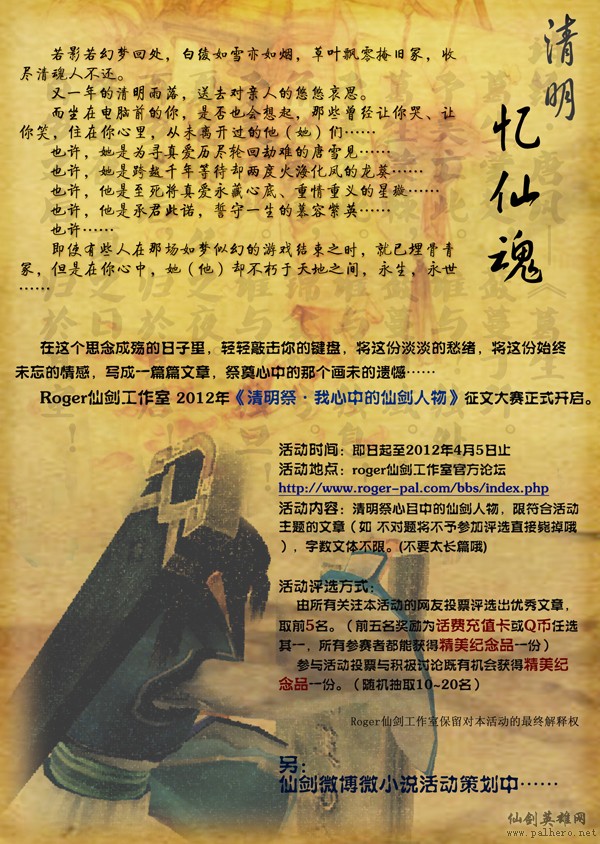 清明
忆仙魂
若影若幻梦回处，白绫如雪亦如烟，草叶飘零掩旧冢，收
尽清魂人不还。
又一年的清明雨落，送去对亲人的悠悠哀思。
而坐在电脑前的你，是否也会想起，那些曾经让你哭、让
你笑，住在你心里，从未离开过的他（她）们……
也许，她是为寻真爱历尽轮回劫难的唐雪见……
也许，她是跨越千年等待却两度火海化凤的龙葵……
也许，他是至死将真爱永藏心底、重情重义的星璇……
也许，他是承君此诺，誓守一生的慕容紫英……
也许……
即使有些人在那场如梦似幻的游戏结束之时，就已埋骨青
冢，但是在你心中，她（他）却不朽于天地之间，永生，永世
……
在这个思念成殇的日子里，轻轻敲击你的键盘，将这份淡淡的愁绪，将这份始终
未忘的情感，写成一篇篇文章，祭奠心中的那个画未的遗憾……
Roger仙剑工作室 2012年《清明祭·我心中的仙剑人物》征文大赛正式开启。
活动时间：即日起至2012年4月5日止
活动地点：roger仙剑工作室官方论坛
http://www.roger-pal.com/bbs/index.php
活动内容：清明祭心目中的仙剑人物，限符合活动
主题的文章（如 不对题将不予参加评选直接毙掉哦
），字数文体不限。(不要太长篇哦)
活动评选方式：
由所有关注本活动的网友投票评选出优秀文章，
取前5名。（前五名奖励为话费充值卡或Q币任选
其一，所有参赛者都能获得精美纪念品一份）
参与活动投票与积极讨论既有机会获得精美纪
念品一份。（随机抽取10~20名）
Roger仙剑工作室保留对本活动的最终解释权
另：
仙剑微博微小说活动策划中……
仙剑英雄网
www.palhero.net